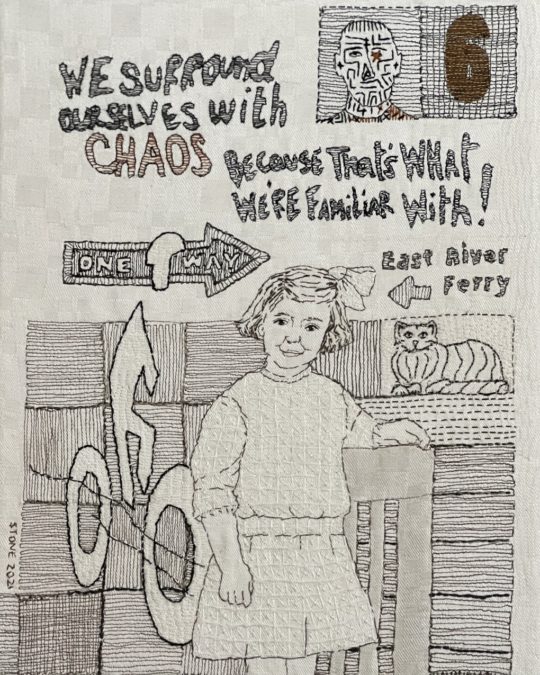 6
WE SURROUND
OURSELVES WITH
CHAOS
BECAUSE THAT'S WHAT
WE'RE FAMILIAR WITH!
ONE WAY
East River
Ferry
STONE 2021